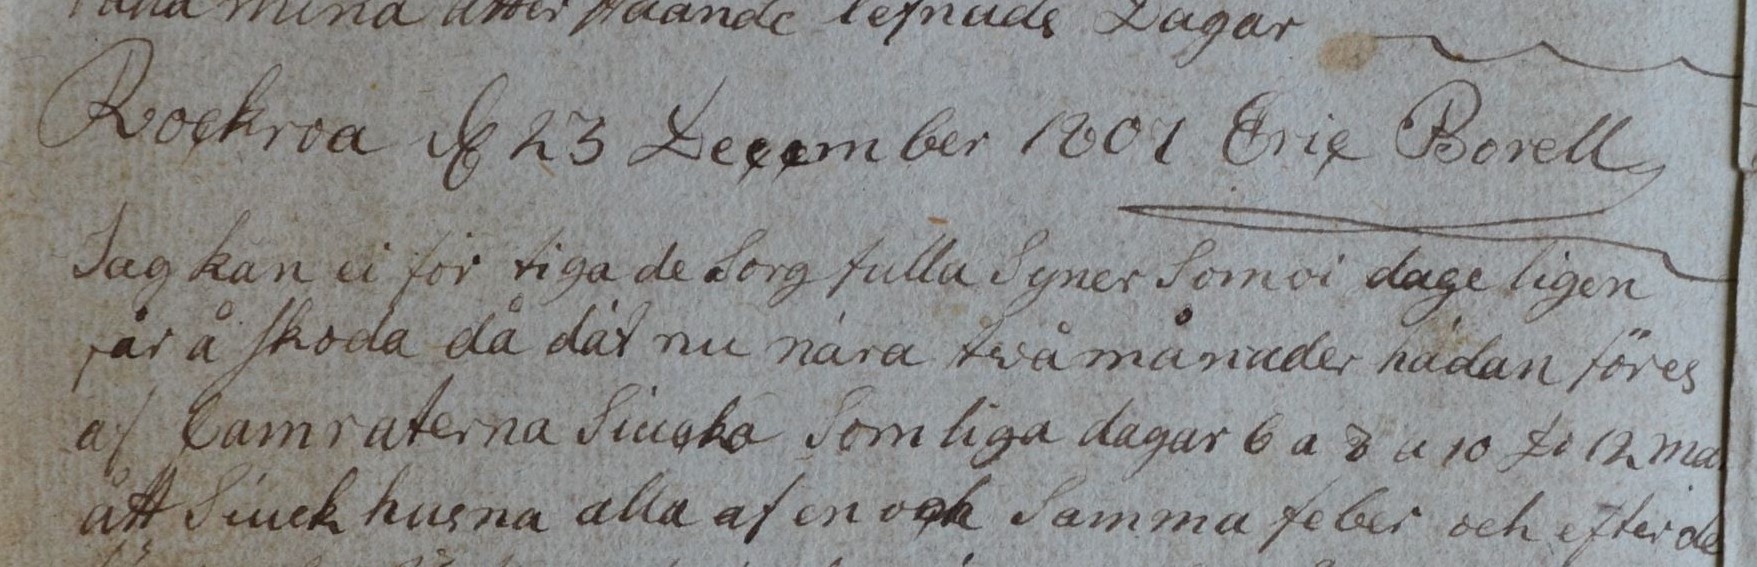 alla mina åtter ståande lefnads Dagar
Rockroa d 23 December 1807 Eric Borell
Jag kan ei för tiga de Sorg fulla Syner Som vi dage ligen
får å skoda då dät nu nära twå månader hädan föres
af Camraterna Siucka Som liga dagar 6 a 8 a 10 to 12 ma
ått Siuck husna alla af en och Samma feber och efter de